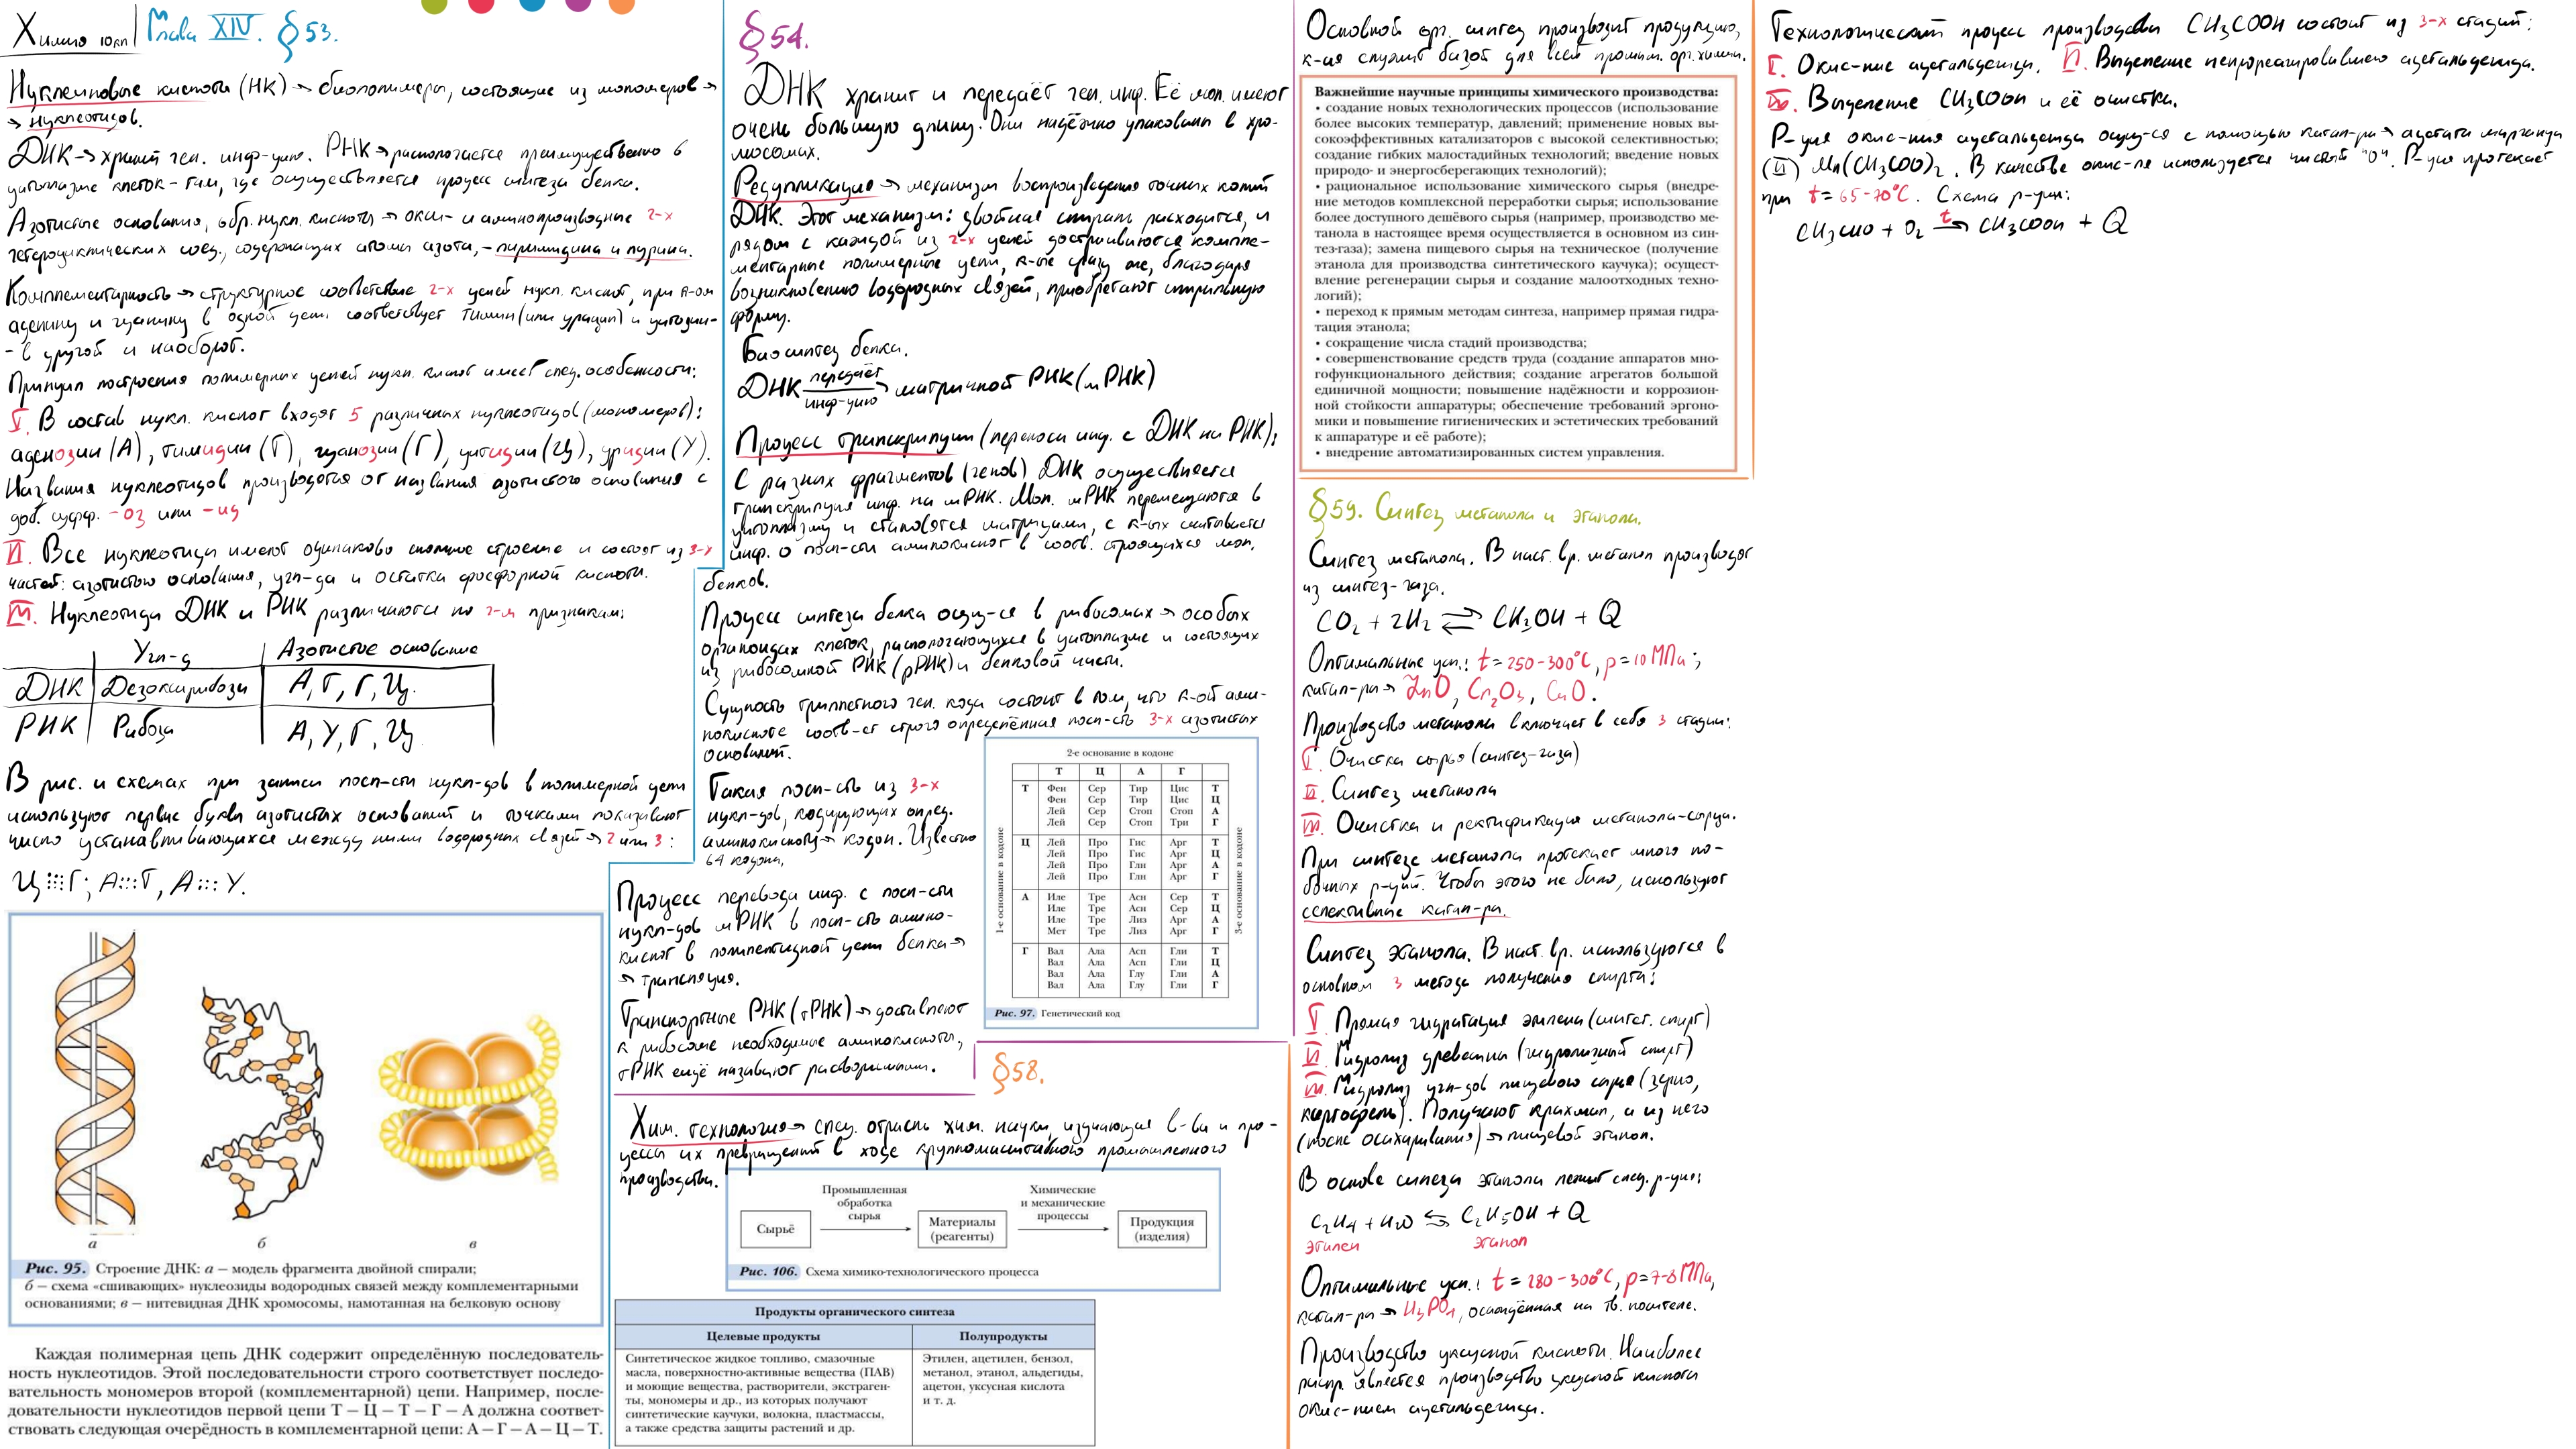 Химия 10кл | Глава XIV. §53.
Нуклеиновые кислоты (НК) → биополимеры, состоящие из мономеров →
→ нуклеотидов.
ДНК → хранит ген. инф-цию. РНК → располагается преимущественно в
цитоплазме клеток – там, где осуществляется процесс синтеза белка.
Азотистые основания, обр. нукл. кислоты → окси- и аминопроизводные 2-х
гетероциклических соед., содержащих атомы азота, – пиримидина и пурина.
Комплементарность → структурное соответствие 2-х цепей нукл. кислот, при к-ом
аденину и гуанину в одной цепи соответствует тимин (или урацил) и цитозин –
– в другой и наоборот.
Принцип построения полимерных цепей нукл. кислот имеет след. особенности:
I. В состав нукл. кислот входят 5 различных нуклеотидов (мономеров):
аденозин (А), тимидин (Т), гуанозин (Г), цитидин (Ц), уридин (У).
Названия нуклеотидов производятся от названия азотистого основания с
доб. суфф. -оз или -ид
II. Все нуклеотиды имеют одинаково сложное строение и состоят из 3-х
частей: азотистого основания, угл-да и остатка фосфорной кислоты.
III. Нуклеотиды ДНК и РНК различаются по 2-м признакам:
Угл-д | Азотистое основание
ДНК | Дезоксирибоза | А, Т, Г, Ц.
РНК | Рибоза | А, У, Г, Ц
В рис. и схемах при записи посл-сти нукл-дов в полимерной цепи
используют первые буквы азотистых оснований и точками показывают
число устанавливающихся между ними водородных связей → 2 или 3:
Ц⁝⁝⁝Г; А:::Т, А:::У.
а
б
в
Рис. 95. Строение ДНК: а — модель фрагмента двойной спирали;
б — схема «сшивающих» нуклеозиды водородных связей между комплементарными
основаниями; в — нитевидная ДНК хромосомы, намотанная на белковую основу
Каждая полимерная цепь ДНК содержит определённую последователь-
ность нуклеотидов. Этой последовательности строго соответствует последо-
вательность мономеров второй (комплементарной) цепи. Например, после-
довательности нуклеотидов первой цепи Т — Ц — Т — Г — А должна соответ-
ствовать следующая очерёдность в комплементарной цепи: А — Г — А — Ц — Т.
§54.
ДНК хранит и передаёт ген. инф. Её мол. имеют
очень большую длину. Они надёжно упакованы в хро-
мосомах.
Редупликация → механизм воспроизведения точных копий
ДНК. Этот механизм: двойная спираль расходится, и
рядом с каждой из 2-х цепей достраиваются компле-
ментарные полимерные цепи, к-ые сразу же, благодаря
возникновению водородных связей, приобретают спиральную
форму.
Биосинтез белка.
ДНК передаёт инф-цию → матричной РНК (мРНК)
Процесс транскрипции (переноса инф. с ДНК на РНК):
С разных фрагментов (генов) ДНК осуществляется
транскрипция инф. на мРНК. Мол. мРНК перемещаются в
цитоплазму и становятся матрицами, с к-ых считывается
инф. о посл-сти аминокислот в соотв. строящихся мол.
белков.
Процесс синтеза белка осущ-ся в рибосомах → особых
органоидах клеток, располагающихся в цитоплазме и состоящих
из рибосомной РНК (рРНК) и белковой части.
Сущность триплетного ген. кода состоит в том, что к-ой ами-
нокислоте соотв-ет строго определённая посл-сть 3-х азотистых
оснований.
Такая посл-сть из 3-х
нукл-дов, кодирующих опред.
аминокислоту → кодон. Известно
64 кодона.
Процесс перевода инф. с посл-сти
нукл-дов мРНК в посл-сть амино-
кислот в полипептидной цепи белка →
→ трансляция.
Транспортные РНК (тРНК) → доставляют
к рибосоме необходимые аминокислоты,
тРНК ещё называют растворимыми.
2-е основание в кодоне
1-е основание в кодоне
3-е основание в кодоне
Т Ц А Г
Т Фен Сер Тир Цис Т
Фен Сер Тир Цис Ц
Лей Сер Стоп Стоп А
Лей Сер Стоп Три Г
Ц Лей Про Гис Арг Т
Лей Про Гис Арг Ц
Лей Про Глн Арг А
Лей Про Глн Арг Г
А Иле Тре Асн Сер Т
Иле Тре Асн Сер Ц
Иле Тре Лиз Арг А
Мет Тре Лиз Арг Г
Г Вал Ала Асп Гли Т
Вал Ала Асп Гли Ц
Вал Ала Глу Гли А
Вал Ала Глу Гли Г
Рис. 97. Генетический код
§58.
Хим. технология → спец. отрасль хим. науки, изучающая в-ва и про-
цессы их превращений в ходе крупномасштабного промышленного
производства.
Сырьё
Промышленная
обработка
сырья
Материалы
(реагенты)
Химические
и механические
процессы
Продукция
(изделия)
Рис. 106. Схема химико-технологического процесса
Продукты органического синтеза
Целевые продукты | Полупродукты
Синтетическое жидкое топливо, смазочные
масла, поверхностно-активные вещества (ПАВ)
и моющие вещества, растворители, экстраген-
ты, мономеры и др., из которых получают
синтетические каучуки, волокна, пластмассы,
а также средства защиты растений и др.
Этилен, ацетилен, бензол,
метанол, этанол, альдегиды,
ацетон, уксусная кислота
и т. д.
Основной орг. синтез производит продукцию,
к-ая служит базой для всей промышл. орг. химии.
Важнейшие научные принципы химического производства:
• создание новых технологических процессов (использование
более высоких температур, давлений; применение новых вы-
сокоэффективных катализаторов с высокой селективностью;
создание гибких малостадийных технологий; введение новых
природо- и энергосберегающих технологий);
• рациональное использование химического сырья (внедре-
ние методов комплексной переработки сырья; использование
более доступного дешёвого сырья (например, производство ме-
танола в настоящее время осуществляется в основном из син-
тез-газа); замена пищевого сырья на техническое (получение
этанола для производства синтетического каучука); осущест-
вление регенерации сырья и создание малоотходных техно-
логий);
• переход к прямым методам синтеза, например прямая гидра-
тация этанола;
• сокращение числа стадий производства;
• совершенствование средств труда (создание аппаратов мно-
гофункционального действия; создание агрегатов большой
единичной мощности; повышение надёжности и коррозион-
ной стойкости аппаратуры; обеспечение требований эргоно-
мики и повышение гигиенических и эстетических требований
к аппаратуре и её работе);
• внедрение автоматизированных систем управления.
§59. Синтез метанола и этанола.
Синтез метанола. В наст. вр. метанол производят
из синтез-газа.
CO₂ + 2H₂ ⇄ CH₃OH + Q
Оптимальные усл.: t = 250-300°C, p = 10 МПа;
катал-ры → ZnO, Cr₂O₃, CuO.
Производство метанола включает в себя 3 стадии:
I. Очистка сырья (синтез-газа)
II. Синтез метанола
III. Очистка и ректификация метанола-сырца.
При синтезе метанола протекает много по-
бочных р-ций. Чтобы этого не было, используют
селективные катал-ры.
Синтез этанола. В наст. вр. используются в
основном 3 метода получения спирта:
I. Прямая гидратация этилена (синтет. спирт)
II. Гидролиз древесины (гидролизный спирт)
III. Гидролиз угл-дов пищевого сырья (зерно,
картофель). Получают крахмал, а из него
(после осахаривания) → пищевой этанол.
В основе синтеза этанола лежит след. р-ция:
C₂H₄ + H₂O ⇆ C₂H₅OH + Q
этилен этанол
Оптимальные усл.: t = 280-300°C, p = 7-8 МПа,
катал-ры → H₃PO₄, осаждённая на тв. носителе.
Производство уксусной кислоты. Наиболее
распр. является производство уксусной кислоты
окис-нием ацетальдегида.
Технологический процесс производства CH₃COOH состоит из 3-х стадий:
I. Окис-ние ацетальдегида. II. Выделение непрореагировавшего ацетальдегида.
III. Выделение CH₃COOH и её очистка.
Р-ция окис-ния ацетальдегида осущ-ся с помощью катал-ра → ацетата марганца
(II) Mn(CH₃COO)₂. В качестве окис-ля используется чистый "O". Р-ция протекает
при t = 65-70°C. Схема р-ции:
CH₃CHO + O₂ →t CH₃COOH + Q